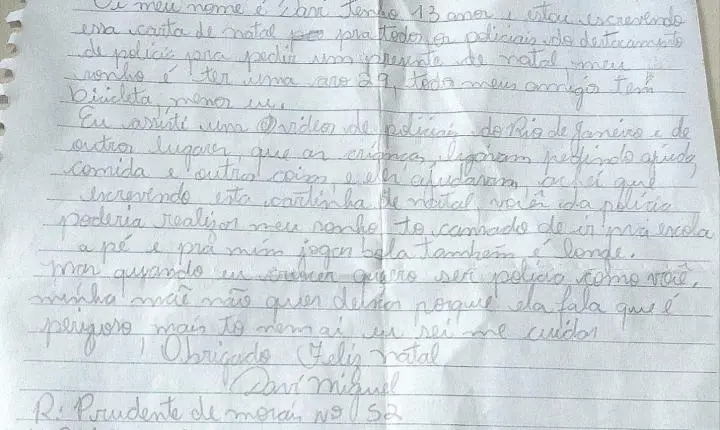 Oi meu nome é Davi Tenho 13 anos e estou escrevendo
essa carta de natal pra todos os policiais do destacamento
de policia pra pedir um presente de natal, meu
sonho é ter uma aro 29, todos meus amigos tem
bicicleta, menos eu.
Eu assisti um videos de policiais do Rio de Janeiro e de
outros lugares, que as crianças ligavam pedindo ajuda,
comida e outras coisas e eles ajudavam, achei que
escrevendo esta cartinha de natal, vocês da policia
poderia realizar meu sonho to cansado de ir pra escola
a pé e pra mim jogar bola também é longe.
mas quando eu crescer quero ser policia como você.
minha mãe não quer deixar porque ela fala que é
perigoso mais to nem ai eu sei me cuidar
Obrigado Feliz natal
Davi Miguel
R: Prudente de morais Nº 52